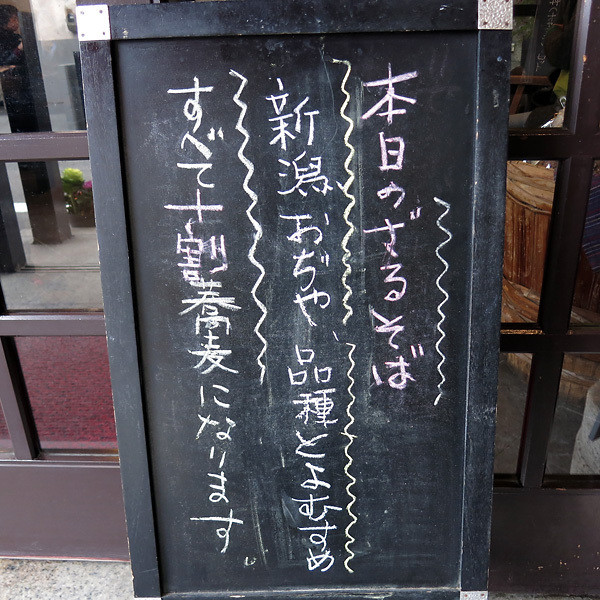 本日のざるそば
新潟、おぢや、品種とよむすめ
すべて十割蕎麦になります。